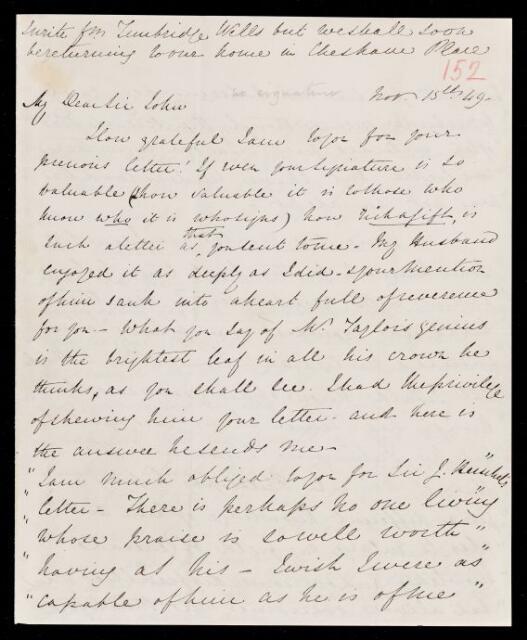 I write fm Tunbridge Wells but we shall soon
be returning to our home in Chesham Place
152
no signature
Nov. 15th 49.
My Dear Sir John
How grateful I am to you for your
precious letter! If even your signature is so
valuable (how valuable it is to those who
know who it is who signs) how rich a gift is
such a letter as that you sent to me - My Husband
enjoyed it as deeply as I did - your mention
of him sank into a heart full of reverence
for you - What you say of Mr. Taylor's genius
is the brightest leaf in all his crown he
thinks, as you shall see. I had the privilege
of shewing him your letter - and here is
the answer he sends me -
"I am much obliged to you for Sir J. Herschel's"
"letter - There is perhaps no one living"
"whose praise is so well worth"
"having as his - I wish I were as"
"capable of him as he is of me"